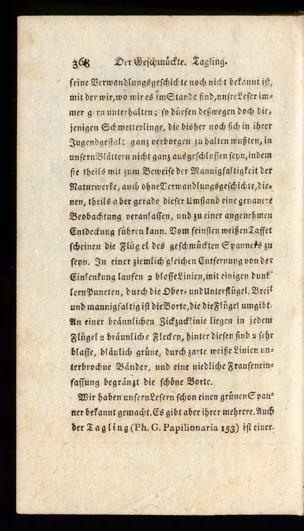 368 Der Geschmückte. Tagling.
seine Verwandlungsgeschichte noch nicht bekannt ist,
mit der wir, wo wir es im Stande sind, unsre Leser im-
mer gern unterhalten; so dürfen deßwegen doch die-
jenigen Schmetterlinge, die bisher noch sich in ihrer
Jugendgestalt ganz verborgen zu halten wußten, in
unsern Blättern nicht ganz ausgeschlossen seyn, indem
sie theils mit zum Beweise der Mannigfaltigkeit der
Naturwerke, auch ohne Verwandlungsgeschichte, die-
nen, theils aber gerade dieser Umstand eine genauere
Beobachtung veranlassen, und zu einer angenehmen
Entdeckung führen kann. Vom feinsten weißen Taffet
scheinen die Flügel des geschmückten Spanners zu
seyn. In einer ziemlich gleichen Entfernung von der
Einlenkung laufen 2 blasse Linien, mit einigen dunk-
lern Puncten, durch die Ober- und Unterflügel. Breit
und mannigfaltig ist die Borte, die die Flügel umgibt.
An einer bräunlichen Zickzacklinie liegen in jedem
Flügel 2 bräunliche Flecken, hinter diesen sind 2 sehr
blasse, bläulich grüne, durch zarte weiße Linien un-
terbrochne Bänder, und eine niedliche Franseneinfassung
fassung begränzt die schöne Borte.
Wir haben unsern Lesern schon einen grünen Span-
ner bekannt gemacht. Es gibt aber ihrer mehrere. Auch
der Tagling (Ph. G. Papilionaria 153) ist einer.